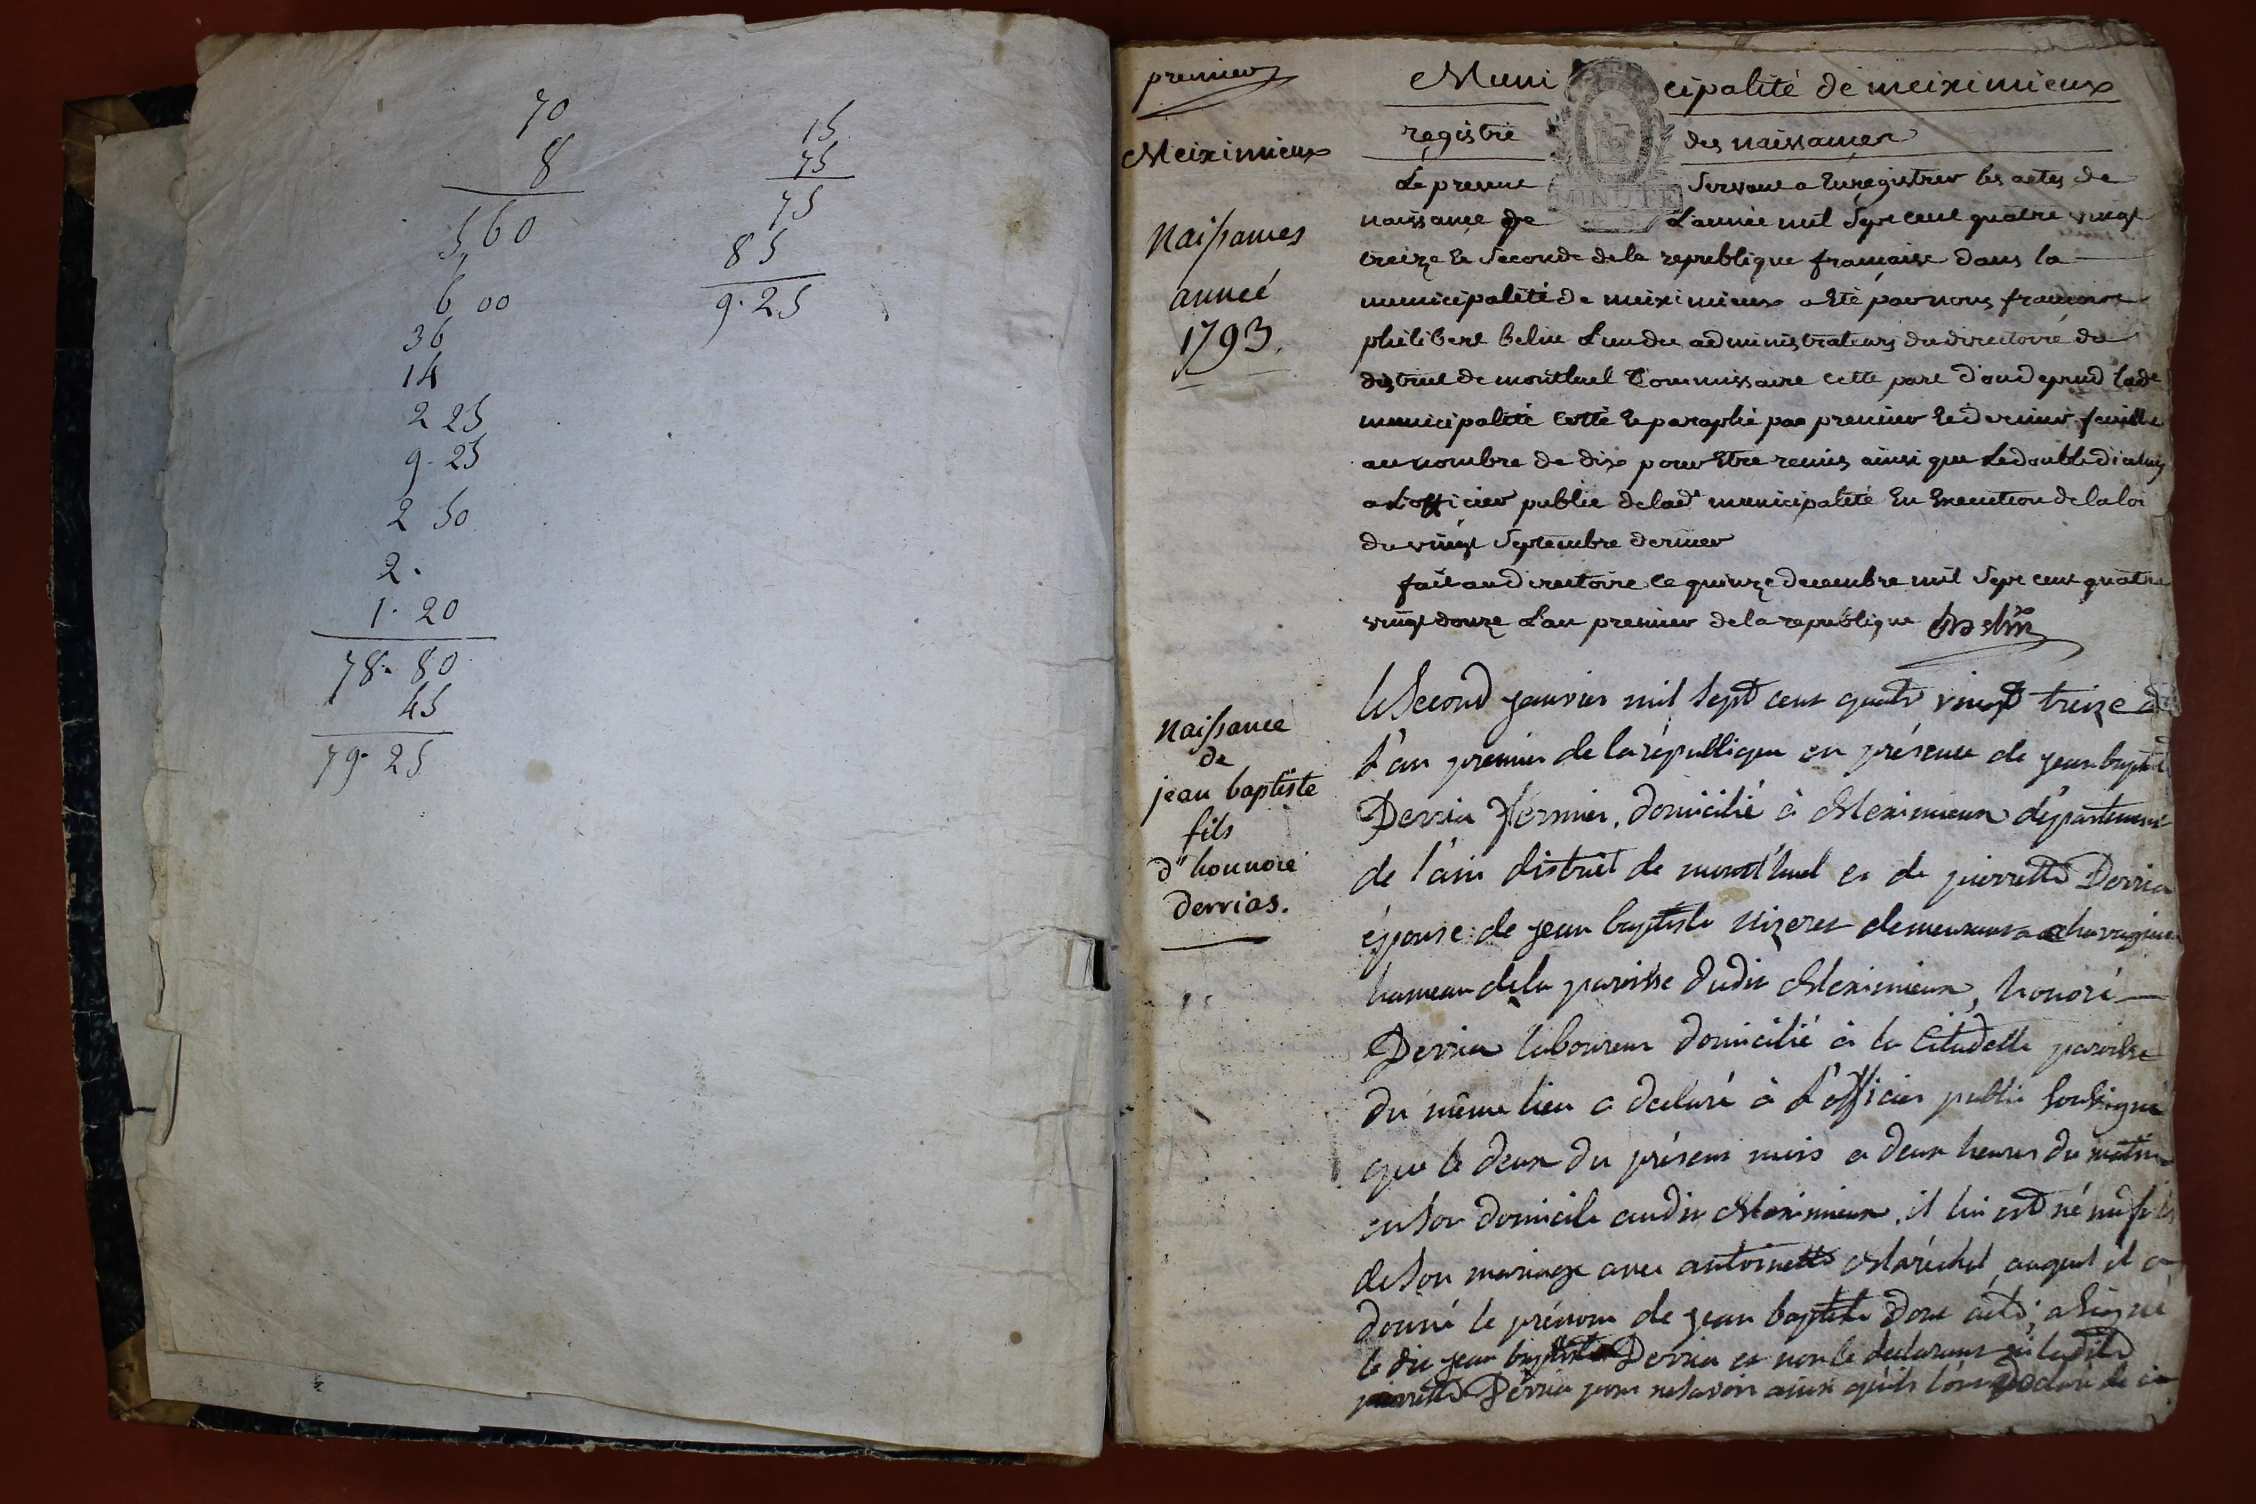 70
8
560
6 00
36
14
2 25
9. 25
2 50
2.
1. 20
78. 80
45
79. 25
15
75
75
85
9. 25
premier
Meiximieux
Naissances
année
1793.
Municipalité de meiximieux
registre des naissances
Le present servant a Enregistrer les actes de
naissance de L'année mil Sept cent quatre vingt
treize le Seconde de la republique francaise dans la
municipalité de meiximieux a Eté par nous francois
philibert belin L'un des administrateurs du directoire du
district de montluel Commissaire cette part d'ou depend lade
municipalité Cotté et paraphé par premier et dernier feuillet
au nombre de dix pour Etre remis ainsi que Le double diceluy
a L'officier public de lade municipalité En Execution de la loi
du vingt Septembre dernier
fait au directoire le quinze decembre mil Sept cent quatre
vingt douze L'an premier de la republique Belin
Naissance
de
jean baptiste
fils
d'honnoré
derrias.
le Second janvier mil sept cent quatre vingt treize
L'an premier de la république en présence de jean baptiste
Derria fermier, domicilié à Meximieux département
de l'ain district de montluel et de pierrette Derria
épouse de jean baptiste demeurant a
hameau de la paroisse dudit Meximieux, honoré
Derria laboureur domicilié à la Citadelle paroisse
du même lieu a declaré à L'officier public Soussigné
que le deux du présent mois a deux heures du matin
en Son domicile audit Meximieux, il lui est né un fils
de Son mariage avec antoinette Maréchal, auquel il a
donné le prénom de jean baptiste Dont acte; a Signé
le dit jean baptiste Derria et non le declarant ni ladite
pierrette Derria pour ne savoir ainsi qu'ils l'ont declaré de ce